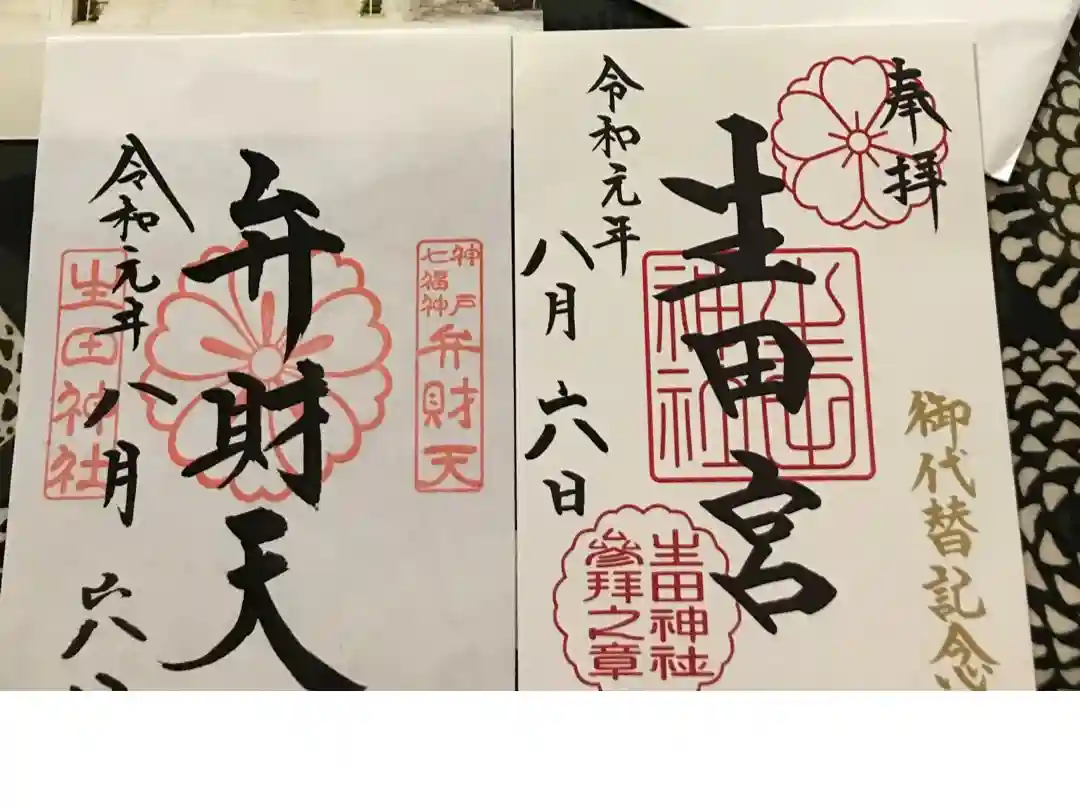 奉拝
生田宮
令和元年
八月六日
生田神社
生田神社
参拝之章
御代替記念
神戸
七福神
弁財天
弁財天
令和元年八月六日
生田神社